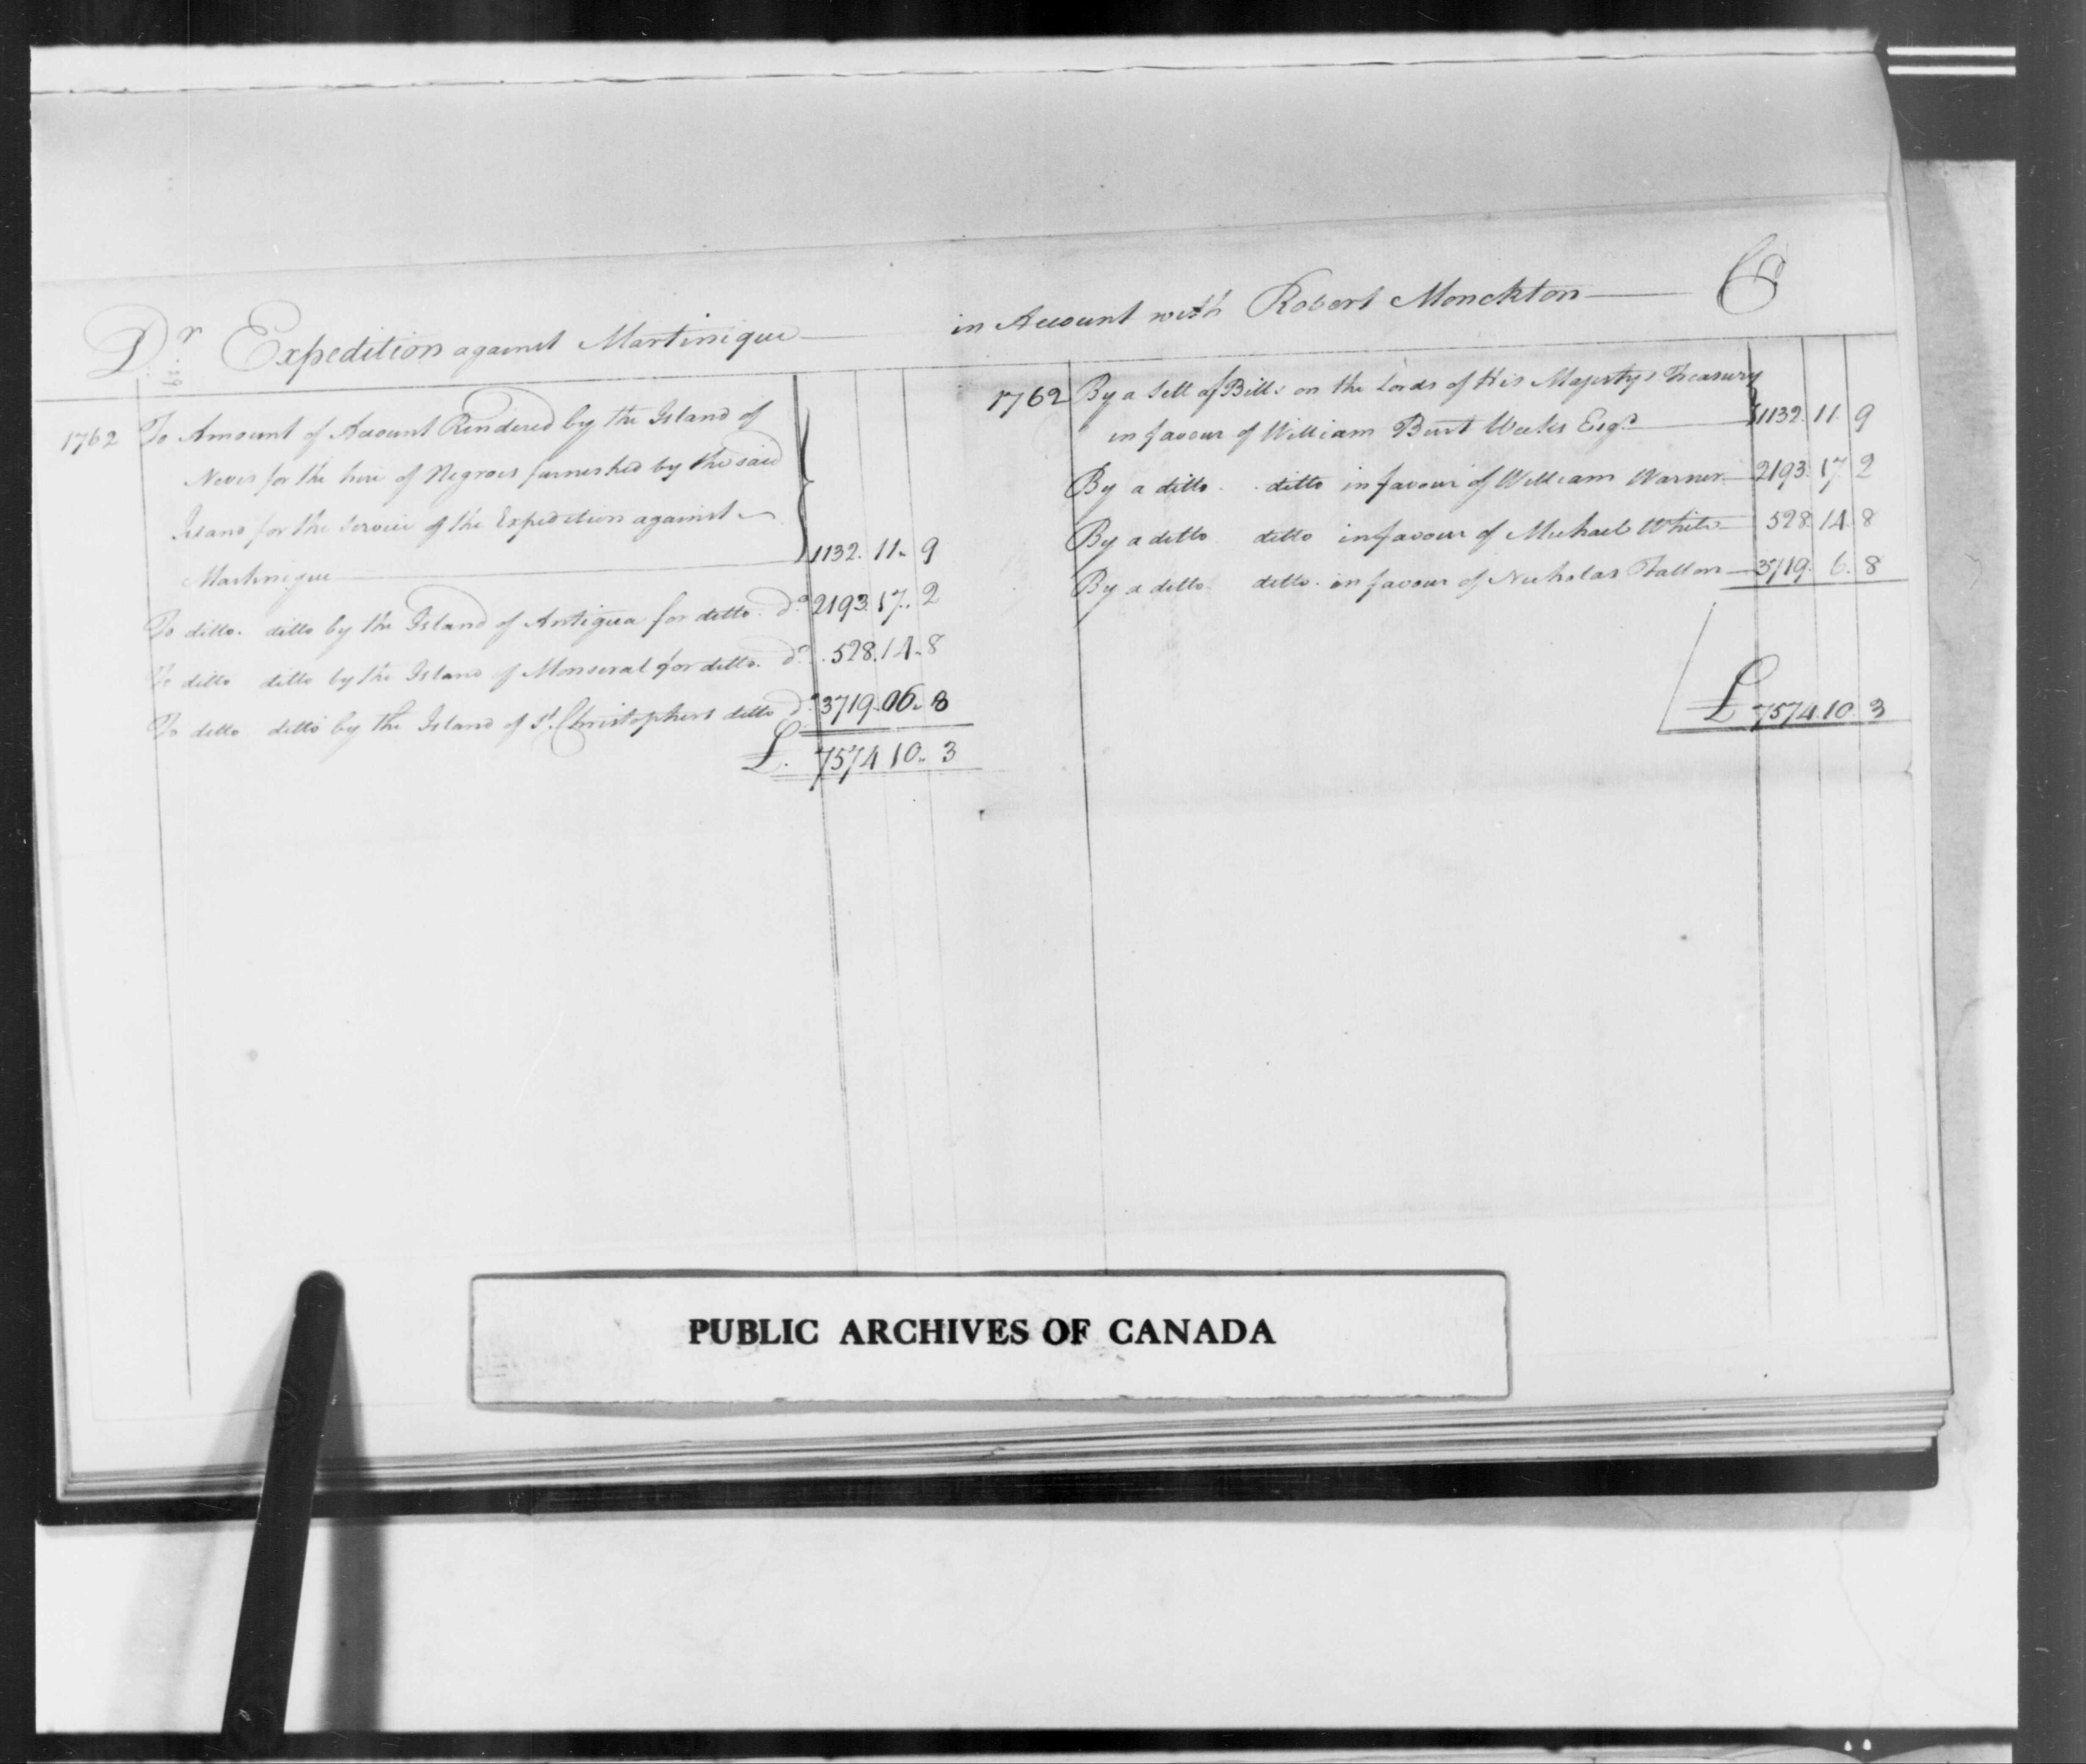 Dr Expedition against Martinique
in Account with Robert Monckton Cr
1762 To Amount of Account Rendered by the Island of
Nevis for the hire of Negroes furnished by the said
Island for the Service of the Expedition against
Martinique 1132. 11. 9
To ditto. ditto by the Island of Antigua for ditto. do 2193. 17. 2
To ditto ditto by the Island of Monserat for ditto. do 528. 14. 8
To ditto ditto by the Island of St. Christophers ditto do 3719. 06. 8
£. 7574 10. 3
1762 By a Sett of Bills on the Lords of His Majestys Treasury
in favour of William Burt Weeks Esqr 1132. 11. 9
By a ditto. ditto in favour of William Warner 2193. 17. 2
By a ditto ditto in favour of Michael White 528. 14. 8
By a ditto ditto. in favour of Nicholas Fallon 3719. 6. 8
£ 7574. 10. 3
PUBLIC ARCHIVES OF CANADA